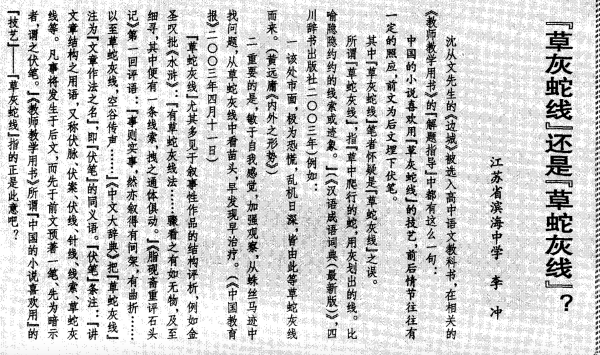 『草灰蛇线』还是『草蛇灰线』？
江苏省滨海中学　李　冲
沈从文先生的《边城》被选入高中语文教科书，在相关的
《教师教学用书》的『解题指导』中都有这么一句：
中国的小说喜欢用『草蛇灰线』的技艺，前后情节往往有
一定的照应，前文为后文埋下伏笔。
其中『草灰蛇线』笔者怀疑是『草蛇灰线』之误。
所谓『草蛇灰线』，指『草中爬行的蛇，用灰划出的线。比
喻隐隐约约的线索或迹象。』（《汉语成语词典（最新版）》，四
川辞书出版社二〇〇三年）例如：
一 该处市面，极为恐慌，乱机日深，皆由此等草蛇灰线
而来。（黄远庸《内外之形势》）
二 重要的是，敏于自我感觉，加强观察，从蛛丝马迹中
找问题，从草蛇灰线中看苗头，早发现早治疗。（《中国教育
报》二〇〇三年四月十一日）
『草蛇灰线』尤其多见于叙事性作品的结构评析，例如金
圣叹批《水浒》：『有草蛇灰线法……骤看之有如无物，及至
细寻，其中便有一条线索，拽之通体俱动。』《脂砚斋重评石头
记》第一回评语：『事则实事，然亦叙得有间架，有曲折……
以至草蛇灰线，空谷传声……』《中文大辞典》把『草蛇灰线』
注为『文章作法之名』，即『伏笔』的同义语。『伏笔』条注：『讲
文章结构之用语，又称伏脉、伏案、伏线、针线、线索、草蛇灰
线等。凡事将发生于后文，而先于前文预著一笔、先为暗示
者，谓之伏笔。』《教师教学用书》所谓『中国的小说喜欢用』的
『技艺』——『草灰蛇线』指的正是此意吧？